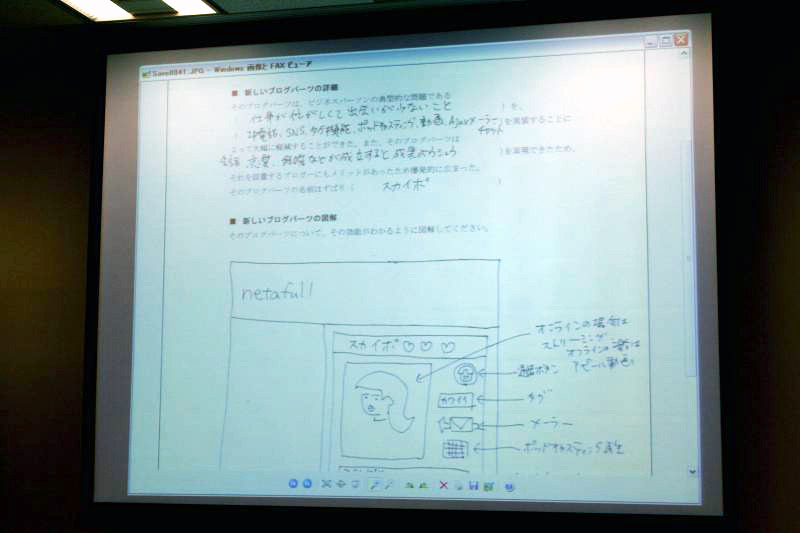 Save0041.JPG - Windows 画像と FAX ビューア
■ 新しいブログパーツの詳細
そのブログパーツは、ビジネスパーソンの典型的な問題である
( 仕事が忙がしくて出会いが少ないこと )を、
( IP電話、SNS、タグ機能、ポッドキャスティング、動画、Ajaxメーラー )を実装することに
チャット
よって大幅に軽減することができた。また、そのブログパーツは
会話、恋愛、結婚などが成立すると成果 )を実現できたため、
それを設置するブロガーにもメリットがあったため爆発的に広まった。
そのブログパーツの名前はずばり( スカイポ )
■ 新しいブログパーツの図解
そのブログパーツについて、その効能がわかるように図解してください。
netafull
スカイポ ♡ ♡ ♡
オンラインの場合は
ストリーミング
オフラインの際は
アピール動画
通話ボタン
カワイイ
タグ
メーラー
ポッドキャスティング再生